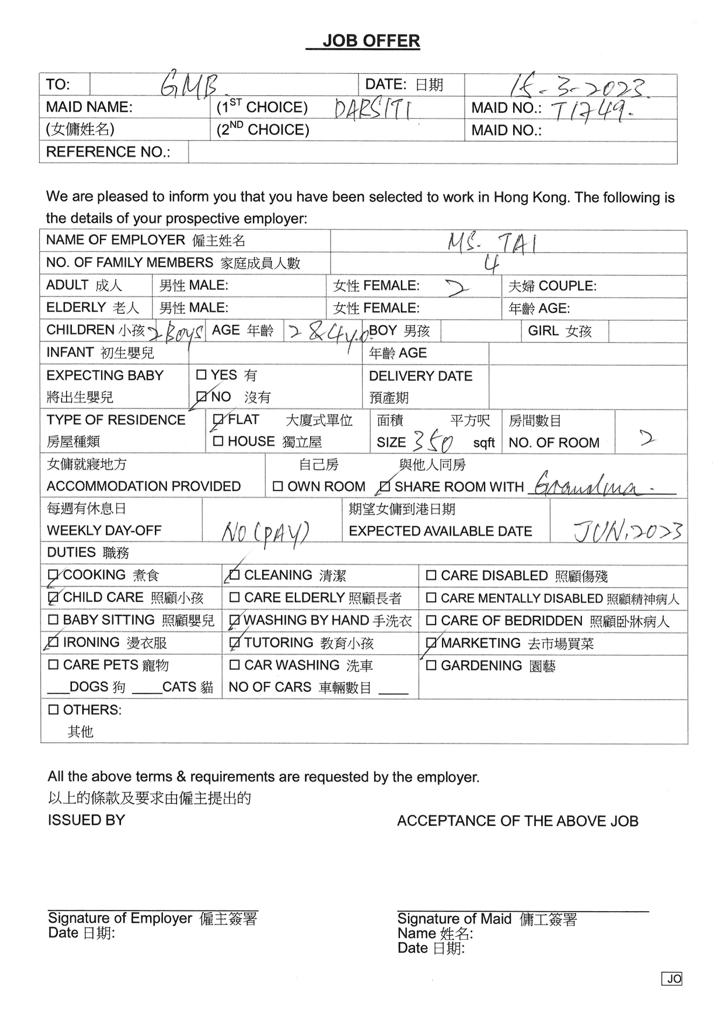 JOB OFFER
TO: GMB DATE: 日期 15-3-2023
MAID NAME: (1ST CHOICE) DARSITI MAID NO.: T1749.
(女傭姓名) (2ND CHOICE) MAID NO.:
REFERENCE NO.:
We are pleased to inform you that you have been selected to work in Hong Kong. The following is
the details of your prospective employer:
NAME OF EMPLOYER 僱主姓名 MS. TAI
NO. OF FAMILY MEMBERS 家庭成員人數 4
ADULT 成人 男性 MALE: 女性 FEMALE: 2 夫婦 COUPLE:
ELDERLY 老人 男性 MALE: 女性 FEMALE: 年齡 AGE:
CHILDREN 小孩 2 Boys AGE 年齡 2 & 4 y.o. BOY 男孩 GIRL 女孩
INFANT 初生嬰兒 年齡 AGE
EXPECTING BABY ☐ YES 有 DELIVERY DATE
將出生嬰兒 ☑ NO 沒有 預產期
TYPE OF RESIDENCE ☑ FLAT 大廈式單位 面積 平方呎 房間數目
房屋種類 ☐ HOUSE 獨立屋 SIZE 350 sqft NO. OF ROOM 2
女傭就寢地方 自己房 與他人同房
ACCOMMODATION PROVIDED ☐ OWN ROOM ☑ SHARE ROOM WITH Grandma.
每週有休息日 期望女傭到港日期
WEEKLY DAY-OFF NO (PAY) EXPECTED AVAILABLE DATE JUN, 2023
DUTIES 職務
☑ COOKING 煮食 ☑ CLEANING 清潔 ☐ CARE DISABLED 照顧傷殘
☑ CHILD CARE 照顧小孩 ☐ CARE ELDERLY 照顧長者 ☐ CARE MENTALLY DISABLED 照顧精神病人
☐ BABY SITTING 照顧嬰兒 ☑ WASHING BY HAND 手洗衣 ☐ CARE OF BEDRIDDEN 照顧卧牀病人
☑ IRONING 燙衣服 ☑ TUTORING 教育小孩 ☑ MARKETING 去市場買菜
☐ CARE PETS 寵物 ☐ CAR WASHING 洗車 ☐ GARDENING 園藝
___DOGS 狗 ____CATS 貓 NO OF CARS 車輛數目 ____
☐ OTHERS:
其他
All the above terms & requirements are requested by the employer.
以上的條款及要求由僱主提出的
ISSUED BY ACCEPTANCE OF THE ABOVE JOB
Signature of Employer 僱主簽署 Signature of Maid 傭工簽署
Date 日期: Name 姓名:
Date 日期:
JO